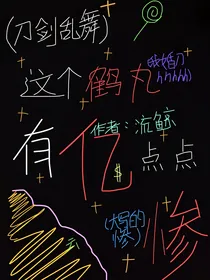 (刀剑乱舞)
这个鹤丸
(我婚刀
hhhhhh)
作者:沆鲸
有亿点点
$
(大写的
惨)
惨